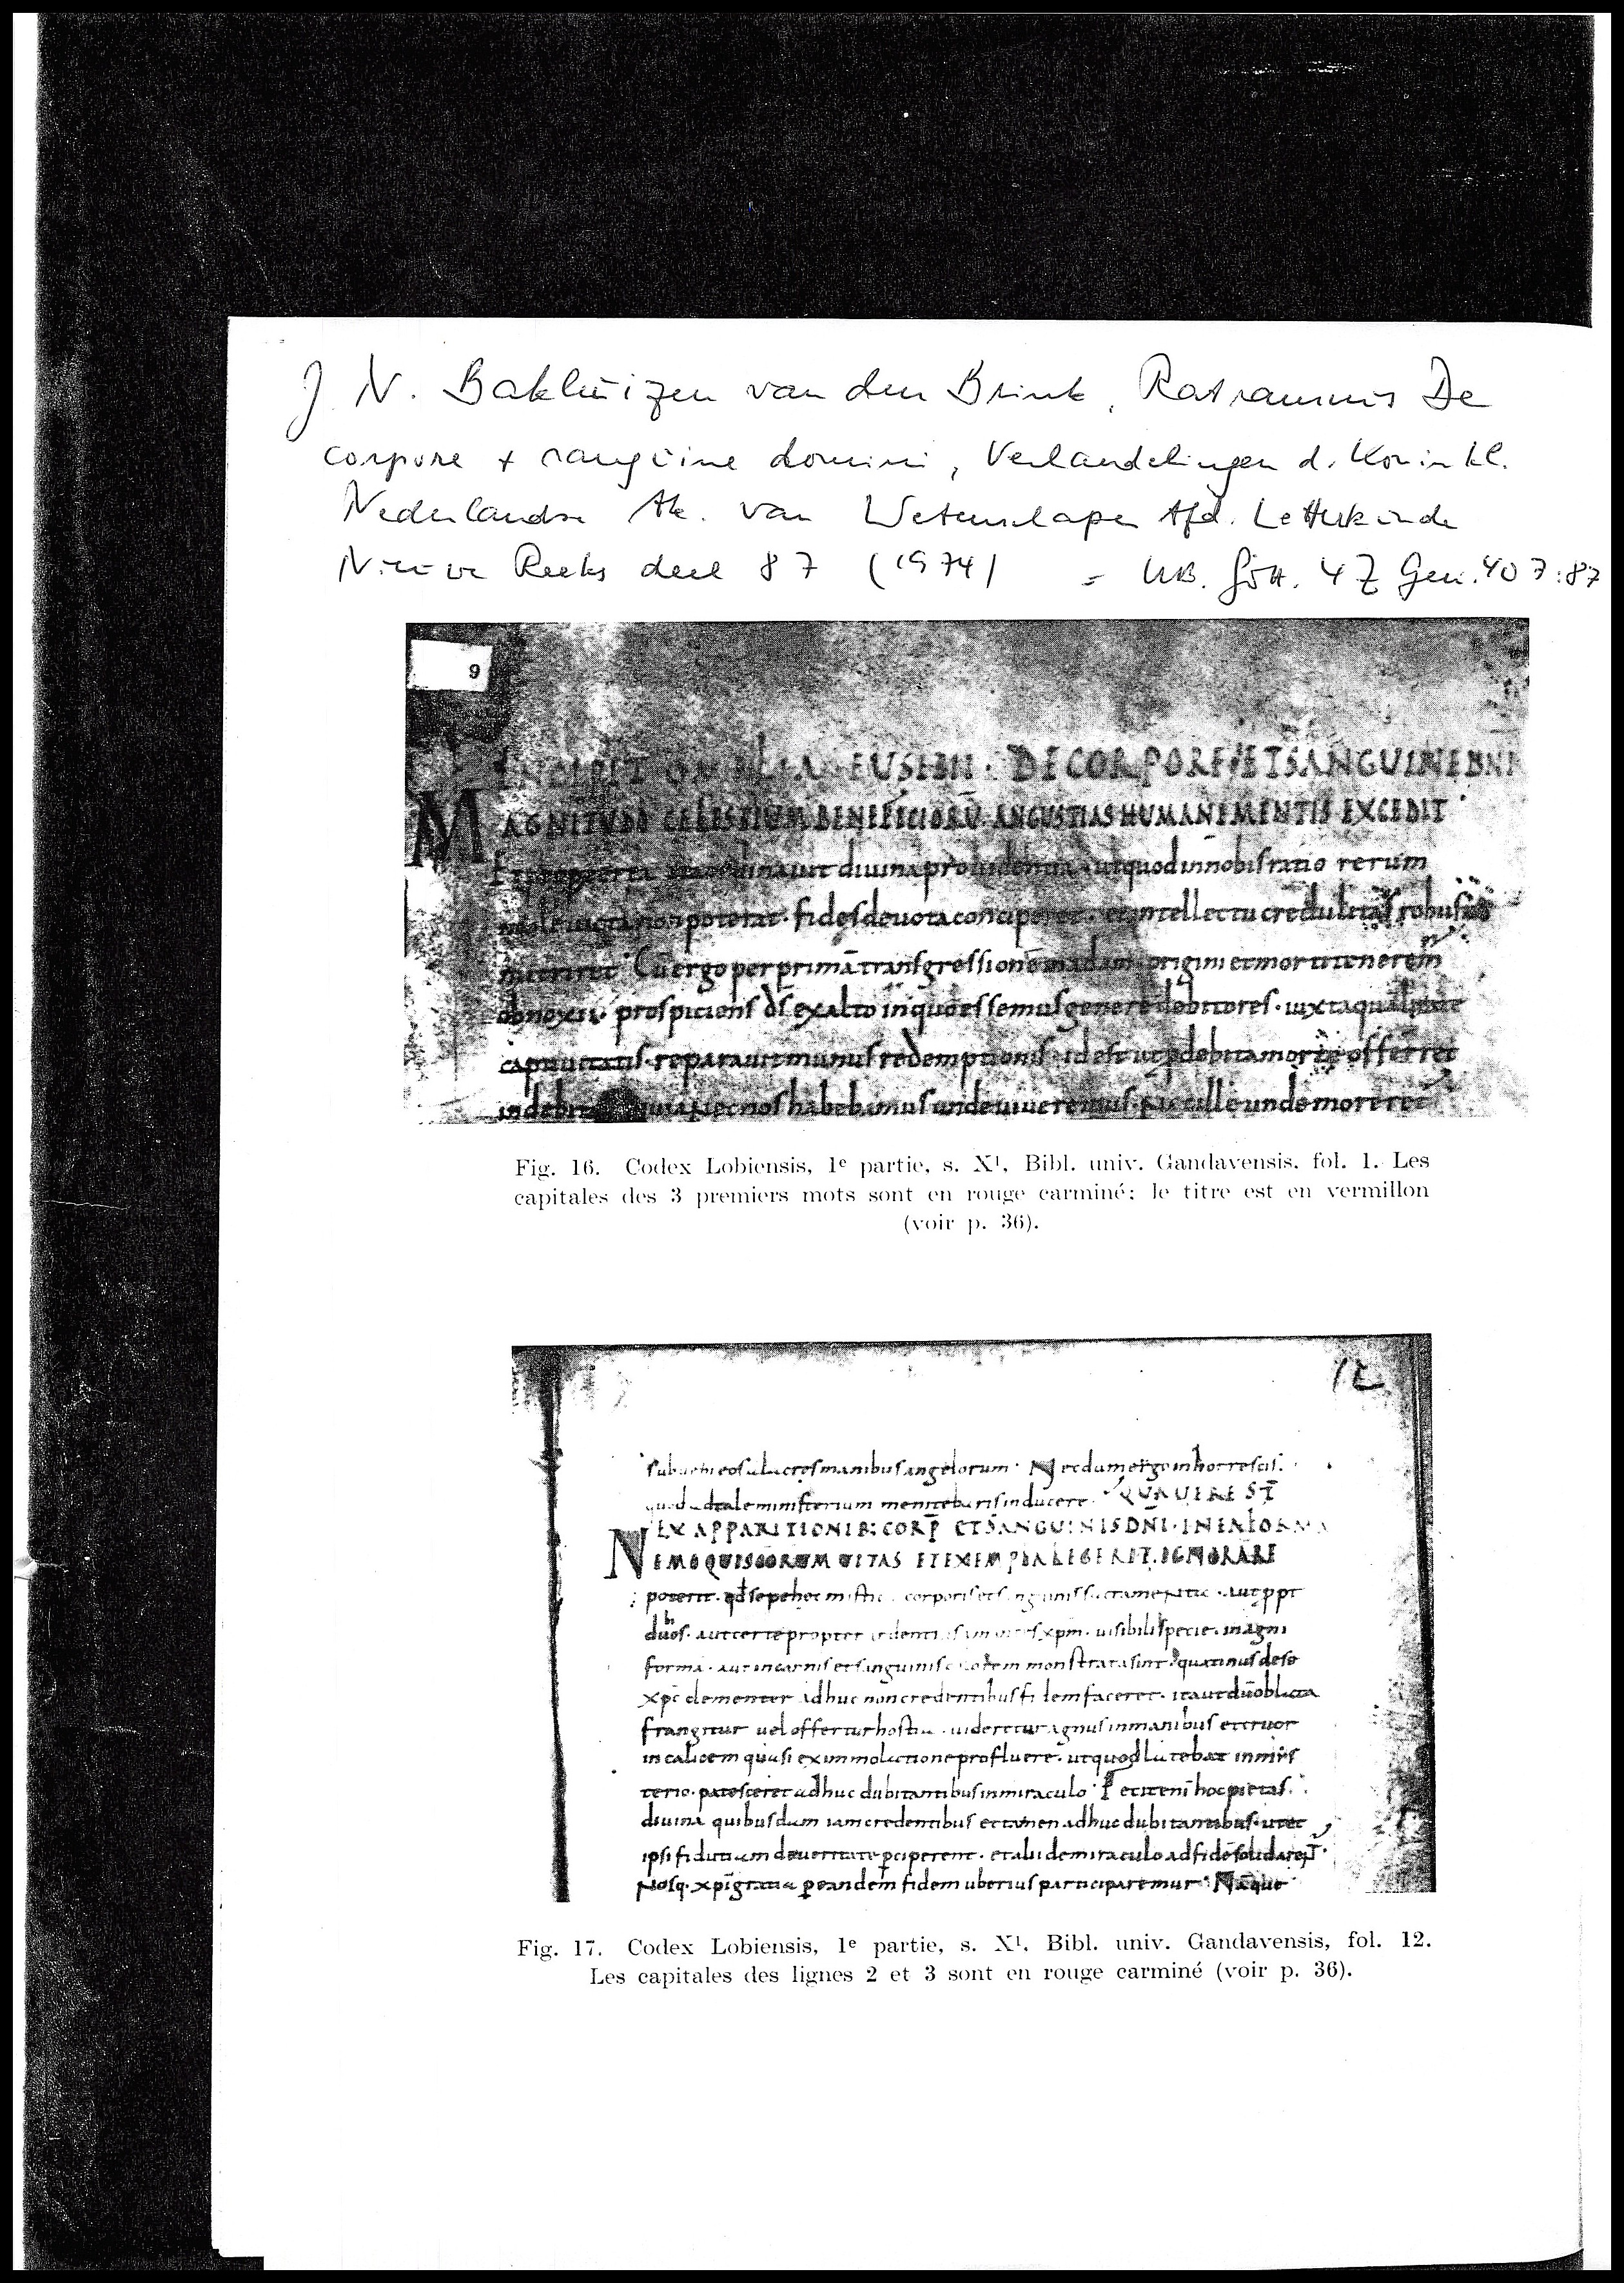 J. N. Bakhuizen van den Brink, Ratramnus De
corpore + sanguine domini, Verhandelingen d. Koninkl.
Nederlandse Ak. van Wetenschapen Afd. Letterkunde
Nieuwe Reeks deel 87 (1974) = UB. Gött. 4 Z Gen. 407:87
9
INCIPIT OMELIA EUSEBII · DE CORPORE ET SANGUINE DNI
MAGNITUDO CELESTIUM BENEFICIORŪ ANGUSTIAS HUMANE MENTIS EXCEDIT
divina providentia ut quod in nobis ratio rerum
non poterat · fides devota conciperet · et intellectu credulitas robusta
nutriret Cu ergo per primā transgressionē adam origini et morti teneremur
obnoxii · prospiciens ds ex alto in quo essemus genere debitores · iuxta qualitate
captivitatis · reparavit munus redemptionis · id est ut p debita morte offerret
indebitam quia nec nos habebamus unde viveremus nec ille unde moreretur
Fig. 16. Codex Lobiensis, 1e partie, s. X1, Bibl. univ. Gandavensis, fol. 1. Les
capitales des 3 premiers mots sont en rouge carminé; le titre est en vermillon
(voir p. 36).
12
manibus angelorum · Necdum ergo inhorrescis ·
ministerium inducere · QUA UERE ST
EX APPARITIONIB; CORP̄ ET SANGUINIS DNI · IN EA FORMA
NEMO QUI SCORUM UITAS ET EXEMPLA LEGERIT · IGNORARE
poterit · qd sepe hec mistica corporis et sanguinis sacramenta · aut ppt
dubios · aut certe propter ardentius amantes xpm · visibili specie · in agni
forma · aut in carnis et sanguinis colorem monstrata sint · quatinus de se
xpc clementer adhuc non credentibus fidem faceret · ita ut dū oblata
frangitur vel offertur hostia · videretur agnus in manibus et cruor
in calicem quasi ex immolatione profluere · ut quod latebat in mis
terio · patesceret adhuc dubitantibus in miraculo · Fecit enī hoc pietas ·
divina quibusdam iam credentibus et tamen adhuc dubitantibus · ut et
ipsi fidutiam de veritate pciperent · et alii de miraculo ad fidē solidarent
Nosq · xpi gratia p eandem fidem uberius participaremur · Nāque
Fig. 17. Codex Lobiensis, 1e partie, s. X1, Bibl. univ. Gandavensis, fol. 12.
Les capitales des lignes 2 et 3 sont en rouge carminé (voir p. 36).